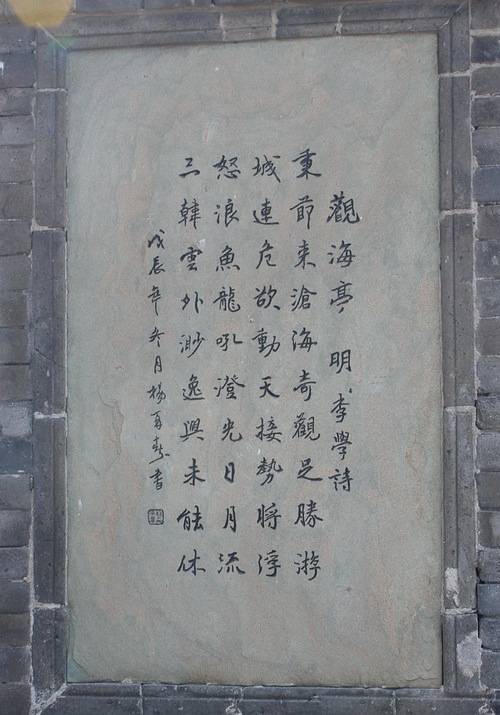 觀海亭 明、李學詩
秉節来滄海奇觀足勝游
城連危欲動天接勢將浮
怒浪魚龍吼澄光日月流
三韓雲外渺逸興未能休
戊辰年冬月楊春書